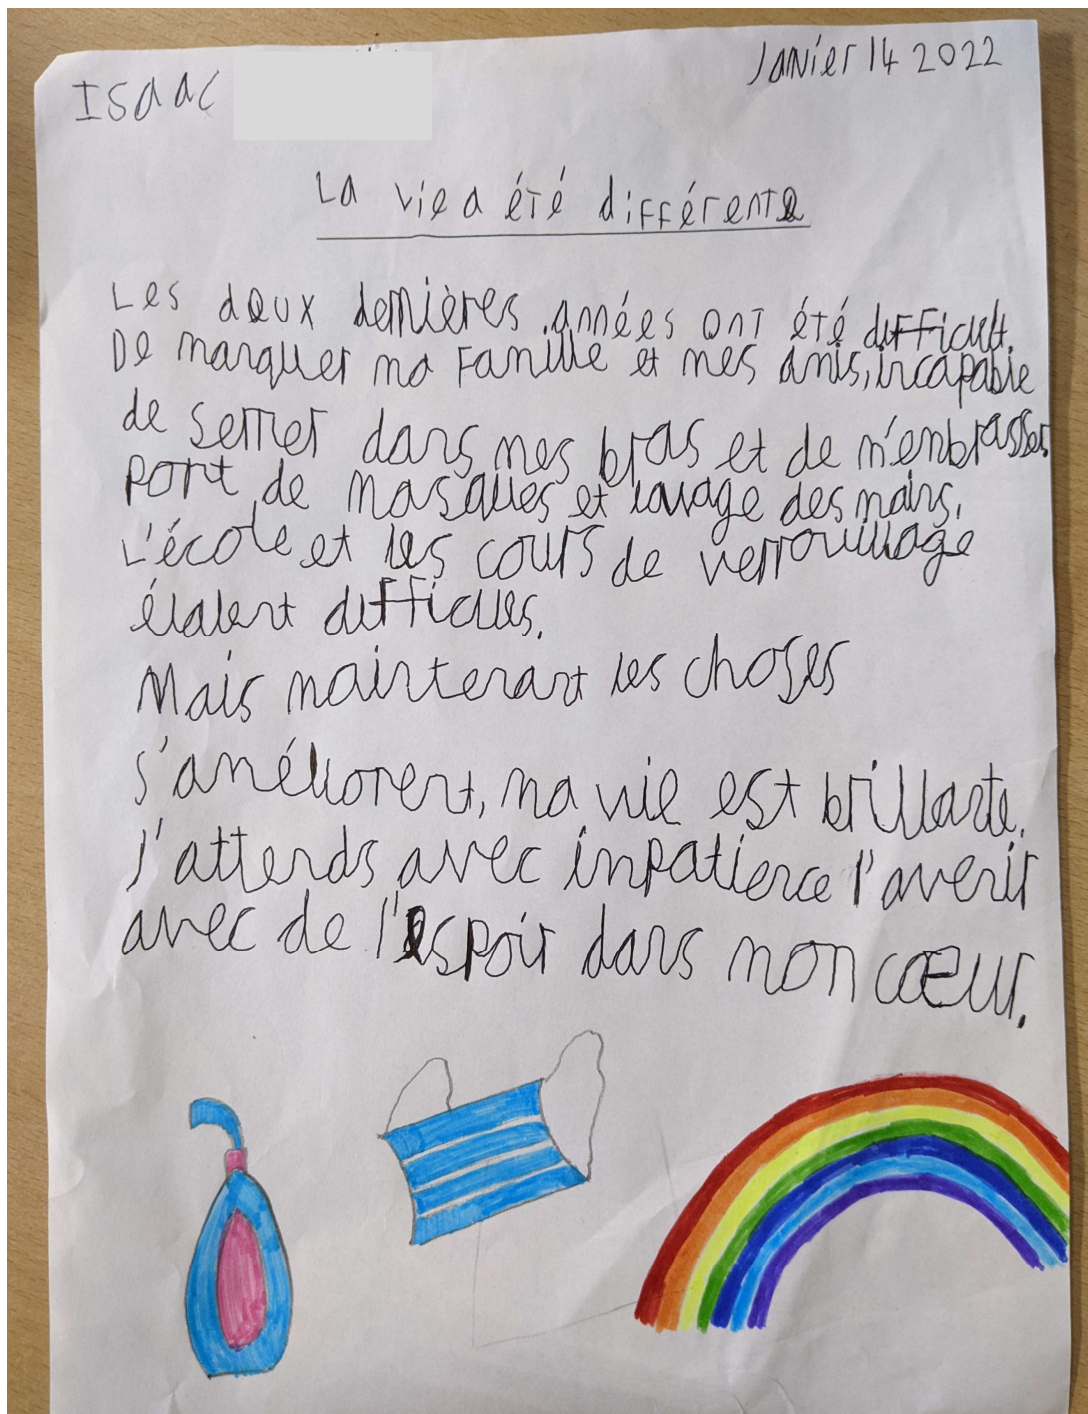 Isaac
Janvier 14 2022
La vie a été différente
Les deux dernières années ont été difficult.
De manquer ma famille et mes amis, incapable
de serrer dans mes bras et de m'enbrasser
Port de masques et lavage des mains.
L'école et les cours de verrouillage
étaient difficiles.
Mais maintenant les choses
s'améliorent, ma vie est brillante.
J'attends avec impatience l'avenir
avec de l'espoir dans mon cœur.